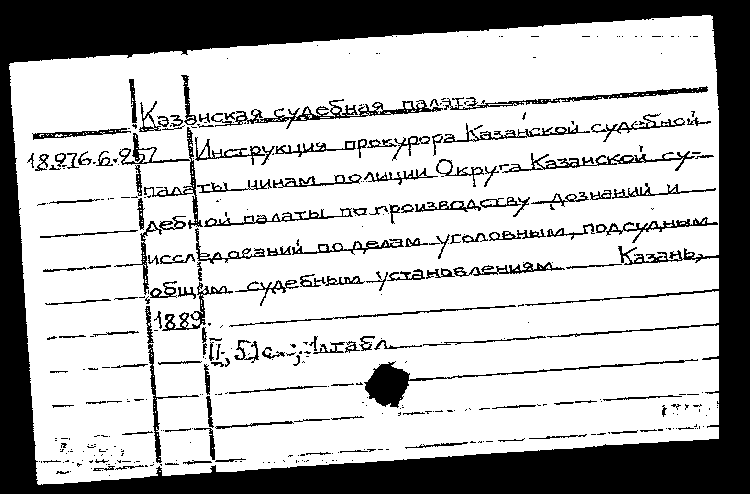 Казанская судебная палата.
18.276.6.257 Инструкция прокурора Казанской судебной
палаты чинам полиции Округа Казанской су-
дебной палаты по производству дознаний и
исследований по делам уголовным, подсудным
общим судебным установлениям. Казань,
1889.
II, 51 с.; 1 табл.